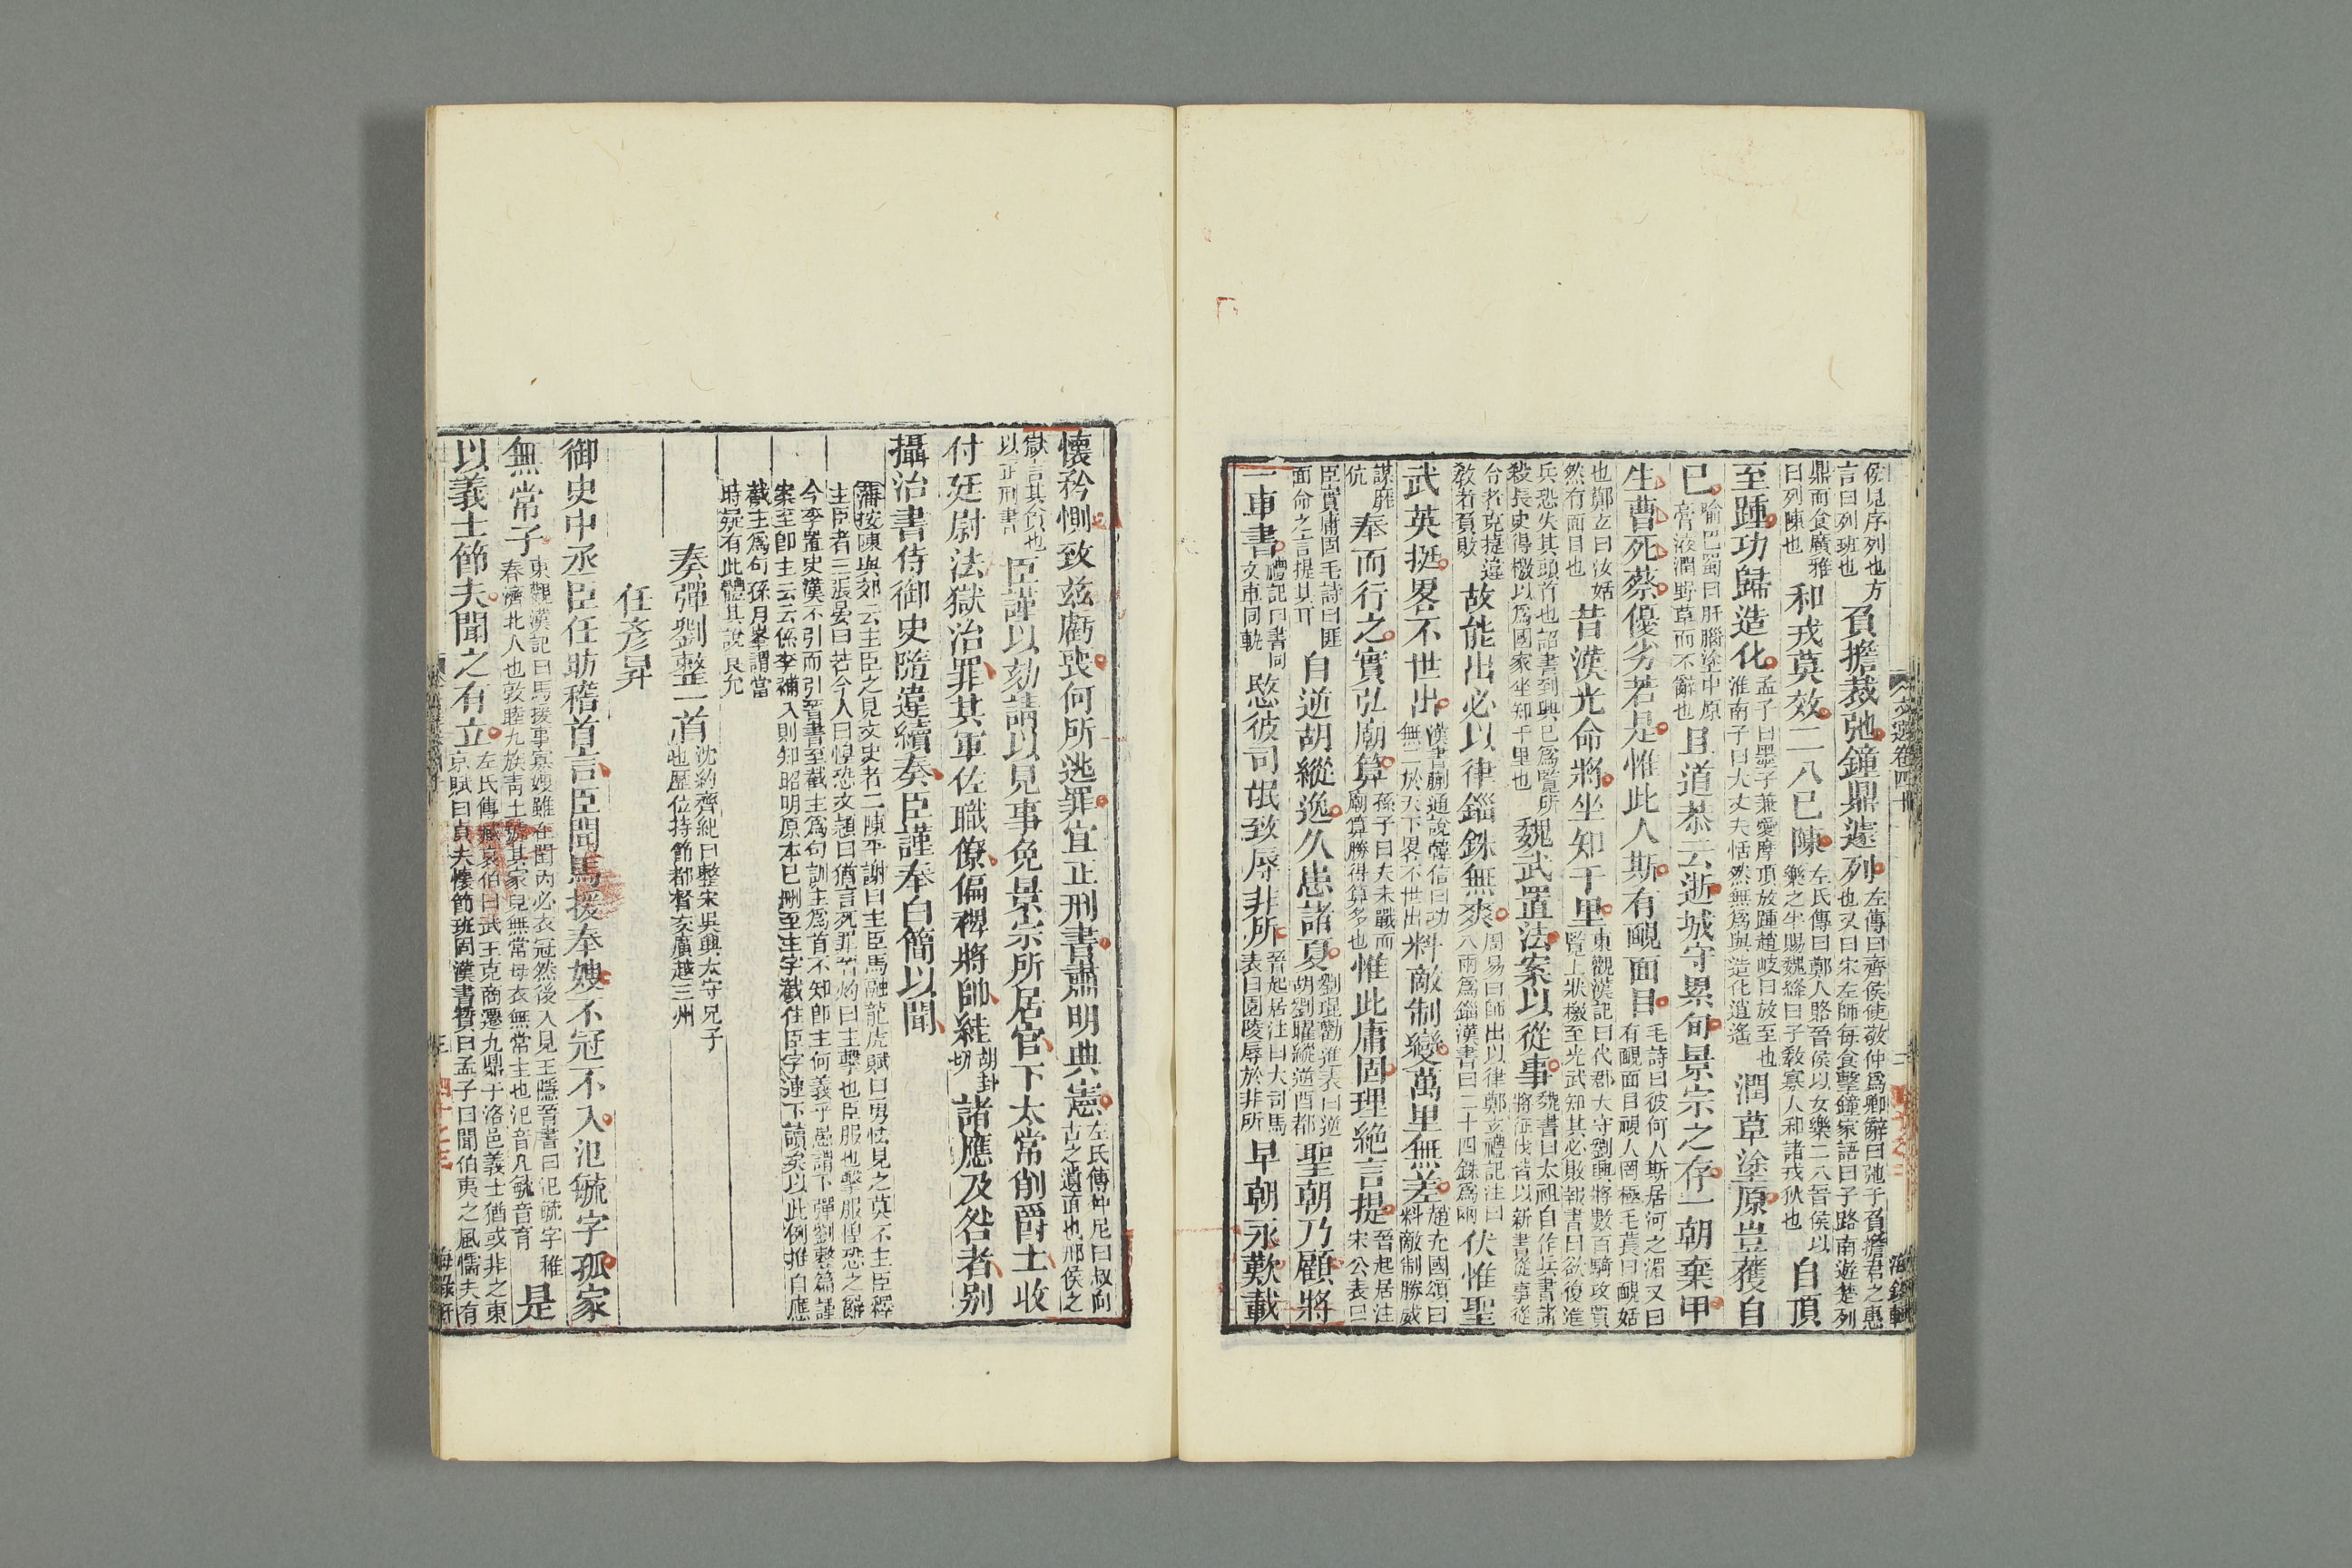 侯見序列也方言曰列班也負擔裁弛鐘鼎遽列左傳曰齊侯使敬仲爲卿辭曰弛于負擔君之惠也又曰宋左師每食擊鐘家語曰子路南遊楚列
鼎而食廣雅曰列陳也和戎莫效二八已陳左氏傳曰鄭人賂晉侯以女樂二八晉侯以樂之半賜魏絳曰子敎寡人和諸戎狄也自頂
至踵功歸造化孟子曰墨子兼愛摩頂放踵趙岐曰放至也淮南子曰大丈夫恬然無爲與造化逍遙潤草塗原豈獲自
已喻巴蜀曰肝腦塗中原膏液潤野草而不辭也且道恭云逝城守累旬景宗之存一朝棄甲
生曹死蔡優劣若是惟此人斯有靦面目毛詩曰彼何人斯居河之湄又曰有靦面目視人罔極毛萇曰靦姡
也鄭玄曰汝姡然有面目也昔漢光命將坐知千里東觀漢記曰代郡太守劉興將數百騎攻賈覽上狀檄至光武知其必敗報書曰欲復進
兵恐失其頭首也詔書到興已爲覽所殺長史得檄以爲國家坐知千里也魏武置法案以從事魏書曰太祖自作兵書諸將征伐皆以新書從事從
令者克捷違敎者負敗故能出必以律錙銖無爽周易曰師出以律鄭玄禮記注曰八兩爲錙漢書曰二十四銖爲兩伏惟聖
武英挺畧不世出漢書蒯通說韓信曰功無二於天下畧不世出料敵制變萬里無差趙充國頌曰料敵制勝威
謀靡亢奉而行之實弘廟算孫子曰夫未戰而廟算勝得算多也惟此庸固理絶言提晉起居注宋公表曰
臣實庸固毛詩曰匪面命之言提其耳自逆胡縱逸久患諸夏劉琨勸進表曰逆胡劉曜縱逸西都聖朝乃顧將
一車書禮記曰書同文車同軌愍彼司氓致辱非所晉起居注曰大司馬表曰園陵辱於非所早朝永歎載
文選卷四十
二
海錄軒
懷矜惻致玆虧喪何所逃罪宜正刑書肅明典憲左氏傳仲尼曰叔向古之遺直也邢侯之
獄言其貪也以正刑書臣謹以劾請以見事免景宗所居官下太常削爵土收
付廷尉法獄治罪其軍佐職僚偏裨將帥絓胡卦切諸應及咎者别
攝治書侍御史隨違續奏臣謹奉白簡以聞
藩按陳與郊云主臣之見文史者二陳平謝曰主臣馬融龍虎賦曰勇怯見之莫不主臣釋主臣者三張晏曰若今人曰惶恐文穎曰猶言死罪晉灼曰主擊也臣服也擊服惶恐之辭
今李置史漢不引而引晉書至截主爲句訓主爲首不知卽主何義乎愚謂下彈劉整篇謹案至卽主云云係李補入則知昭明原本已刪至主字截住臣字連下讀矣以此例推自應
截主爲句孫月峯謂當時疑有此體其說良允
奏彈劉整一首沈約齊紀曰整宋吳興太守兄子也歷位持節都督交廣越三州
任彥昇
御史中丞臣任昉稽首言臣聞馬援奉嫂不冠不入氾毓字孤家
無常子東觀漢記曰馬援事寡嫂雖在閨內必衣冠然後入見王隱晉書曰氾毓字稚春濟北人也敦睦九族靑土號其家兒無常母衣無常主也氾音凡毓音育是
以義士節夫聞之有立左氏傳臧哀伯曰武王克商遷九鼎于洛邑義士猶或非之東京賦曰貞夫懷節班固漢書贊曰孟子曰聞伯夷之風懦夫有
三
海錄軒
四十之三